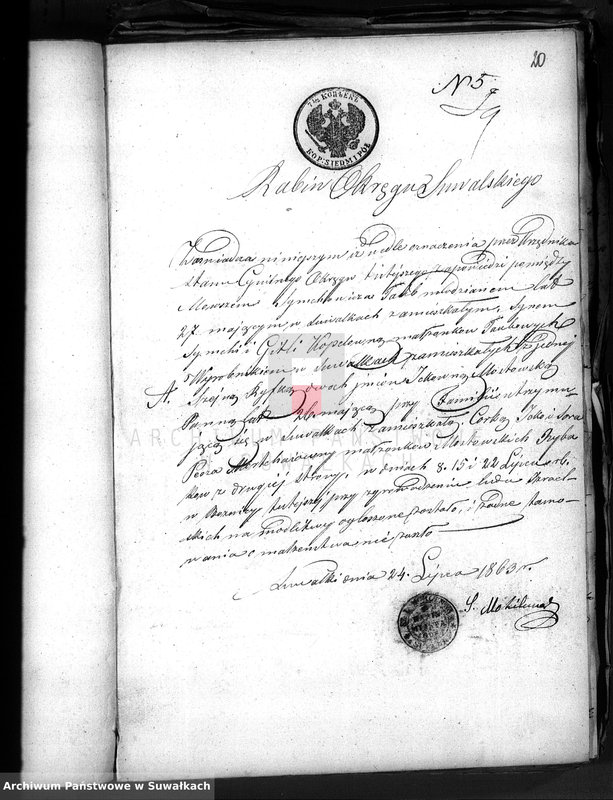 20
N 5
7½ KOPIEEK
KOP. SIEDM I PÓŁ
Rabin Okręgu Suwalskiego
Zaświadcza niniejszym iż wedle oznaczenia przez Urzędnika
Stanu Cywilnego Okręgu tutejszego zapowiedzi pomiędzy
Mowszem Synchowiczem Taub młodzianem lat
27 mającym w Suwałkach zamieszkałym, synem
Synchi i Gitli Kopelowną małżonków Taubowych
Wyrobnikiem w Suwałkach zamieszkałych z jednej
A. Frejną Ryfką dwóch imion Ickowną Mostowską
Panną lat mającą przy familii utrzymu-
jącą się w Suwałkach zamieszkałą, Córką Icka i Sora
Pesza małżonków Mostowskich Ryba
ków z drugiej strony, w dniach 8. 15 i 22 Lipca rb.
w Bożnicy tutejszej przy zgromadzeniu ludu Izrael-
skich na modlitwy ogłoszone zostało, i żadne tamo-
wania o małżeństwa nie zaszło
Suwałki dnia 24. Lipca 1863 r.
S. Mohilewer
ARCHIWUM PAŃSTWOWE
W SUWAŁKACH
Archiwum Państwowe w Suwałkach